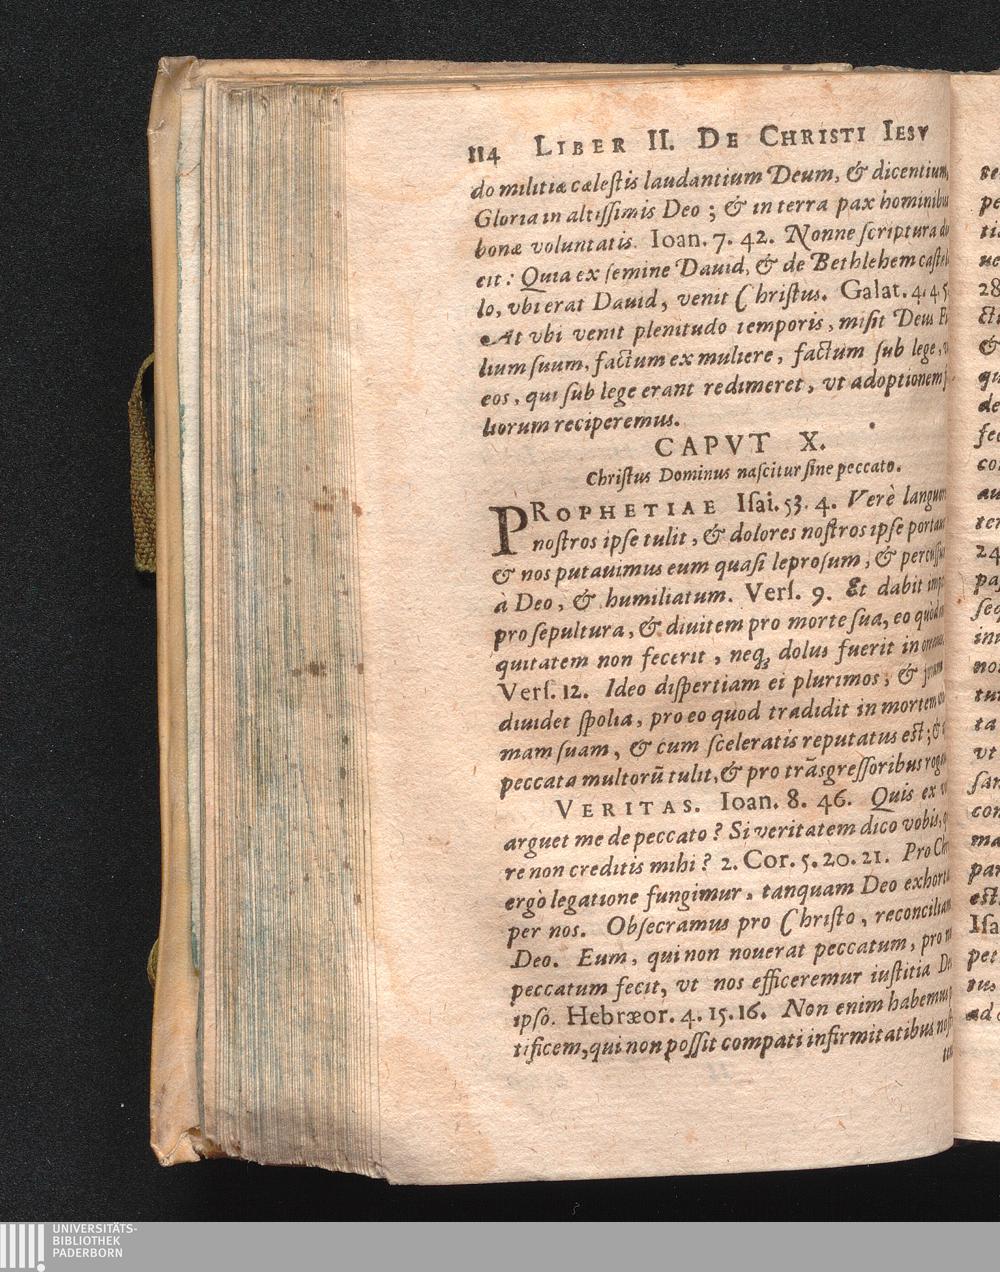 114 LIBER II. DE CHRISTI IESV
do militiæ cælestis laudantium Deum, & dicentium,
Gloria in altissimis Deo; & in terra pax hominibu
bonæ voluntatis. Ioan. 7. 42. Nonne scriptura di
cit: Quia ex semine Dauid, & de Bethlehem castel
lo, vbi erat Dauid, venit Christus. Galat. 4. 4 5
At vbi venit plenitudo temporis, misit Deus Fi
lium suum, factum ex muliere, factum sub lege, v
eos, qui sub lege erant redimeret, vt adoptionem f
liorum reciperemus.
CAPVT X.
Christus Dominus nascitur sine peccato.
PROPHETIAE Isai. 53. 4. Verè languor
nostros ipse tulit, & dolores nostros ipse portau
& nos putauimus eum quasi leprosum, & percussu
à Deo, & humiliatum. Vers. 9. Et dabit imp
pro sepultura, & diuitem pro morte sua, eo quòd in
quitatem non fecerit, neq; dolus fuerit in ore
Vers. 12. Ideo dispertiam ei plurimos, &
diuidet spolia, pro eo quod tradidit in mortem
mam suam, & cum sceleratis reputatus est; &
peccata multorū tulit, & pro trãsgressoribus roga
VERITAS. Ioan. 8. 46. Quis ex v
arguet me de peccato? Si veritatem dico vobis, q
re non creditis mihi? 2. Cor. 5. 20. 21. Pro Chr
ergò legatione fungimur, tanquam Deo exhorta
per nos. Obsecramus pro Christo, reconciliam
Deo. Eum, qui non nouerat peccatum, pro n
peccatum fecit, vt nos efficeremur iustitia De
ipso. Hebræor. 4. 15. 16. Non enim habemus p
tificem, qui non possit compati infirmitatibus nost
pe
28
&
qu
de
con
au
24
pa
ta
vt
con
ma
par
est
Isa
pet
ad
UNIVERSITÄTS-
BIBLIOTHEK
PADERBORN